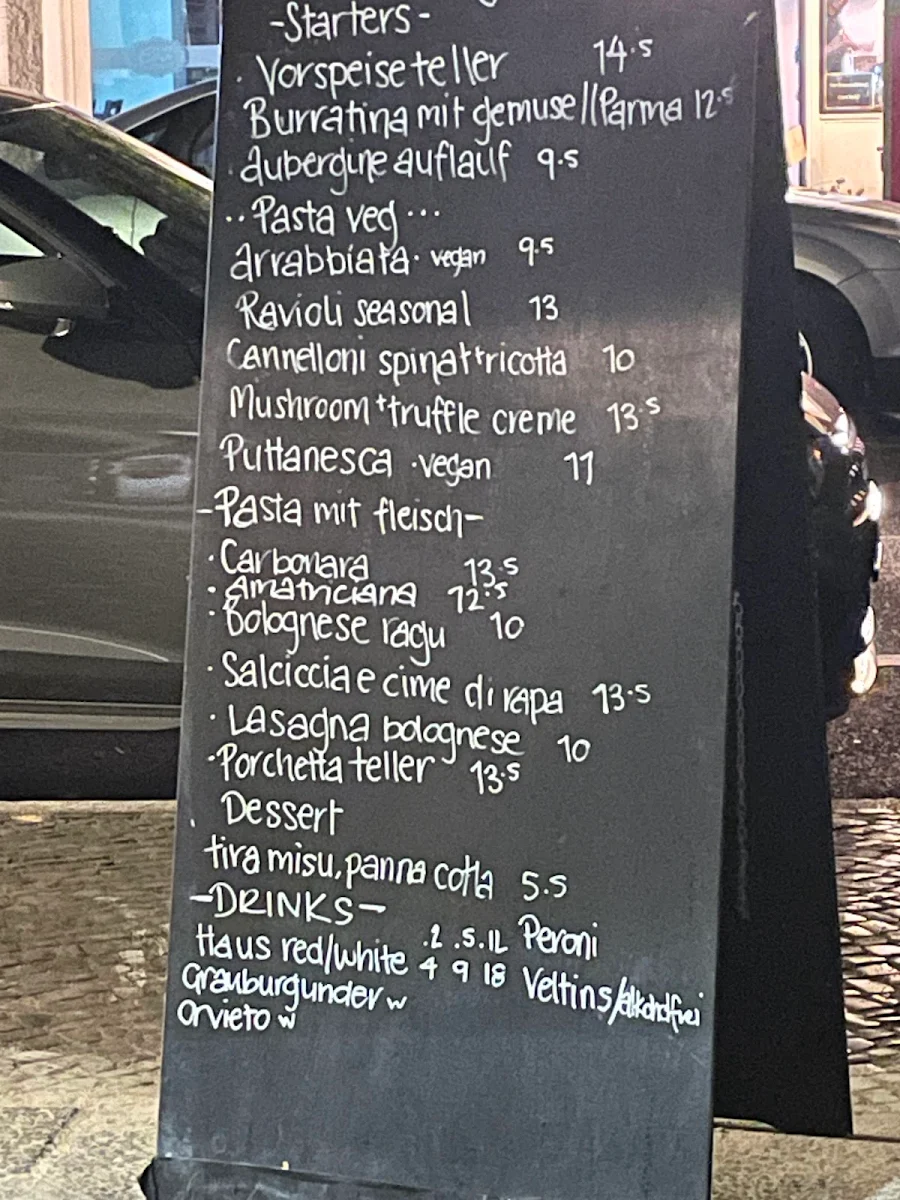 -Starters-
· Vorspeiseteller 14.5
Burratina mit gemuse//Parma 12.5
· aubergine auflauf 9.5
..Pasta veg...
arrabbiata · vegan 9.5
Ravioli seasonal 13
Cannelloni spinat+ricotta 10
Mushroom+truffle creme 13.5
Puttanesca · vegan 11
-Pasta mit fleisch-
· Carbonara 13.5
· amatriciana 12.5
· Bolognese ragu 10
· Salciccia e cime di rapa 13.5
· Lasagna bolognese 10
· Porchetta teller 13.5
. Dessert
tiramisu, panna cotta 5.5
-DRINKS-
.2 .5 .1L Peroni
Haus red/white 4 9 18 Veltins/alkoholfrei
Grauburgunder w
Orvieto w